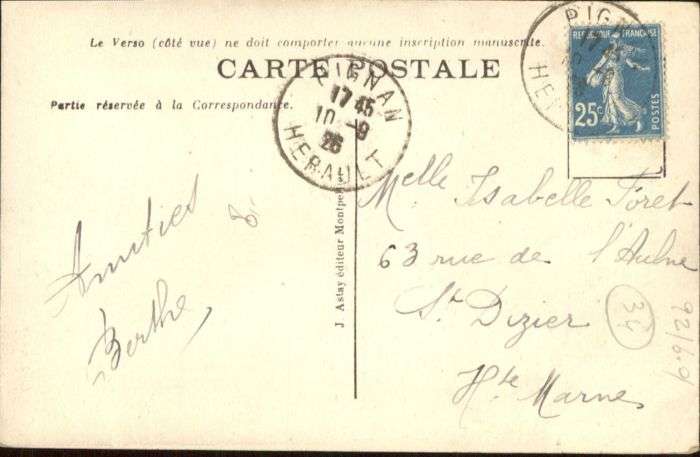 Le Verso (côté vue) ne doit comporter aucune inscription manuscrite.
CARTE POSTALE
Partie réservée à la Correspondance.
PIGNAN
17 45
10 -9
26
HERAULT
PIGNAN
17
HE
25c
POSTES
Amitiés
Berthe,
J. Astay éditeur Montpe
Melle Isabelle Foret
63 rue de l'Aulne
St Dizier
Hte Marne
34
92/609